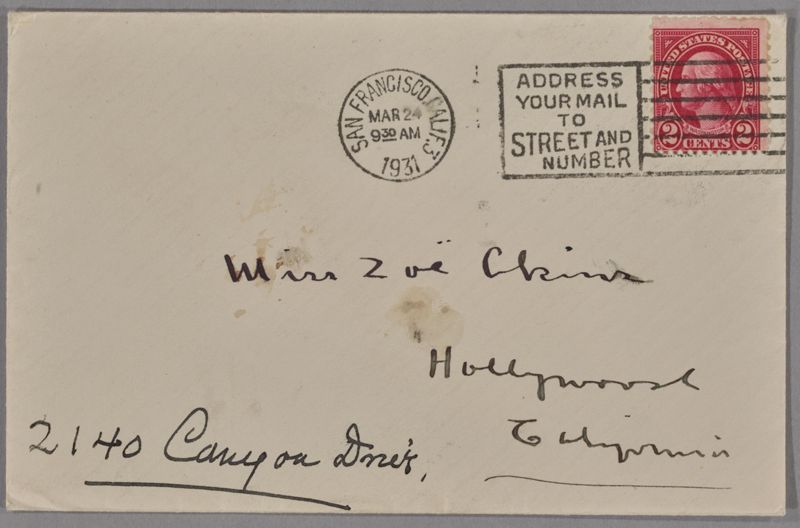 SAN FRANCISCO, CALIF. 3
MAR 24
9 30 AM
1931
ADDRESS
YOUR MAIL
TO
STREET AND
NUMBER
UNITED STATES POSTAGE
2 CENTS 2
Miss Zoë Akins
Hollywood
California
2140 Canyon Drive,